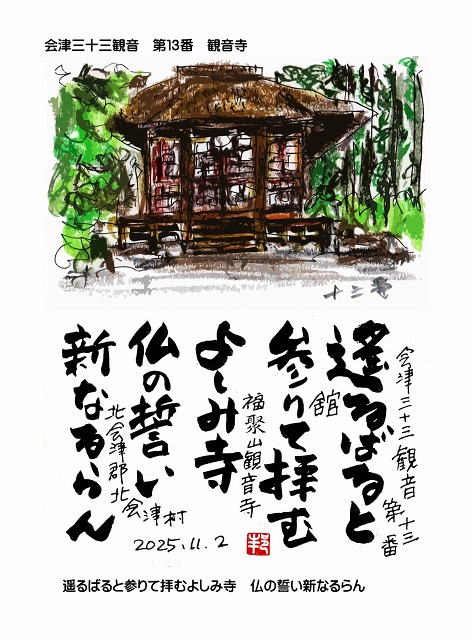 会津三十三観音　第13番　観音寺
十三番
会津三十三観音　第十三番
遥るばると
舘
参りて拝む
福聚山観音寺
よしみ寺
仏の誓い
北会津郡北会津村
新なるらん
2025.11.2
遥るばると参りて拝むよしみ寺　仏の誓い新なるらん